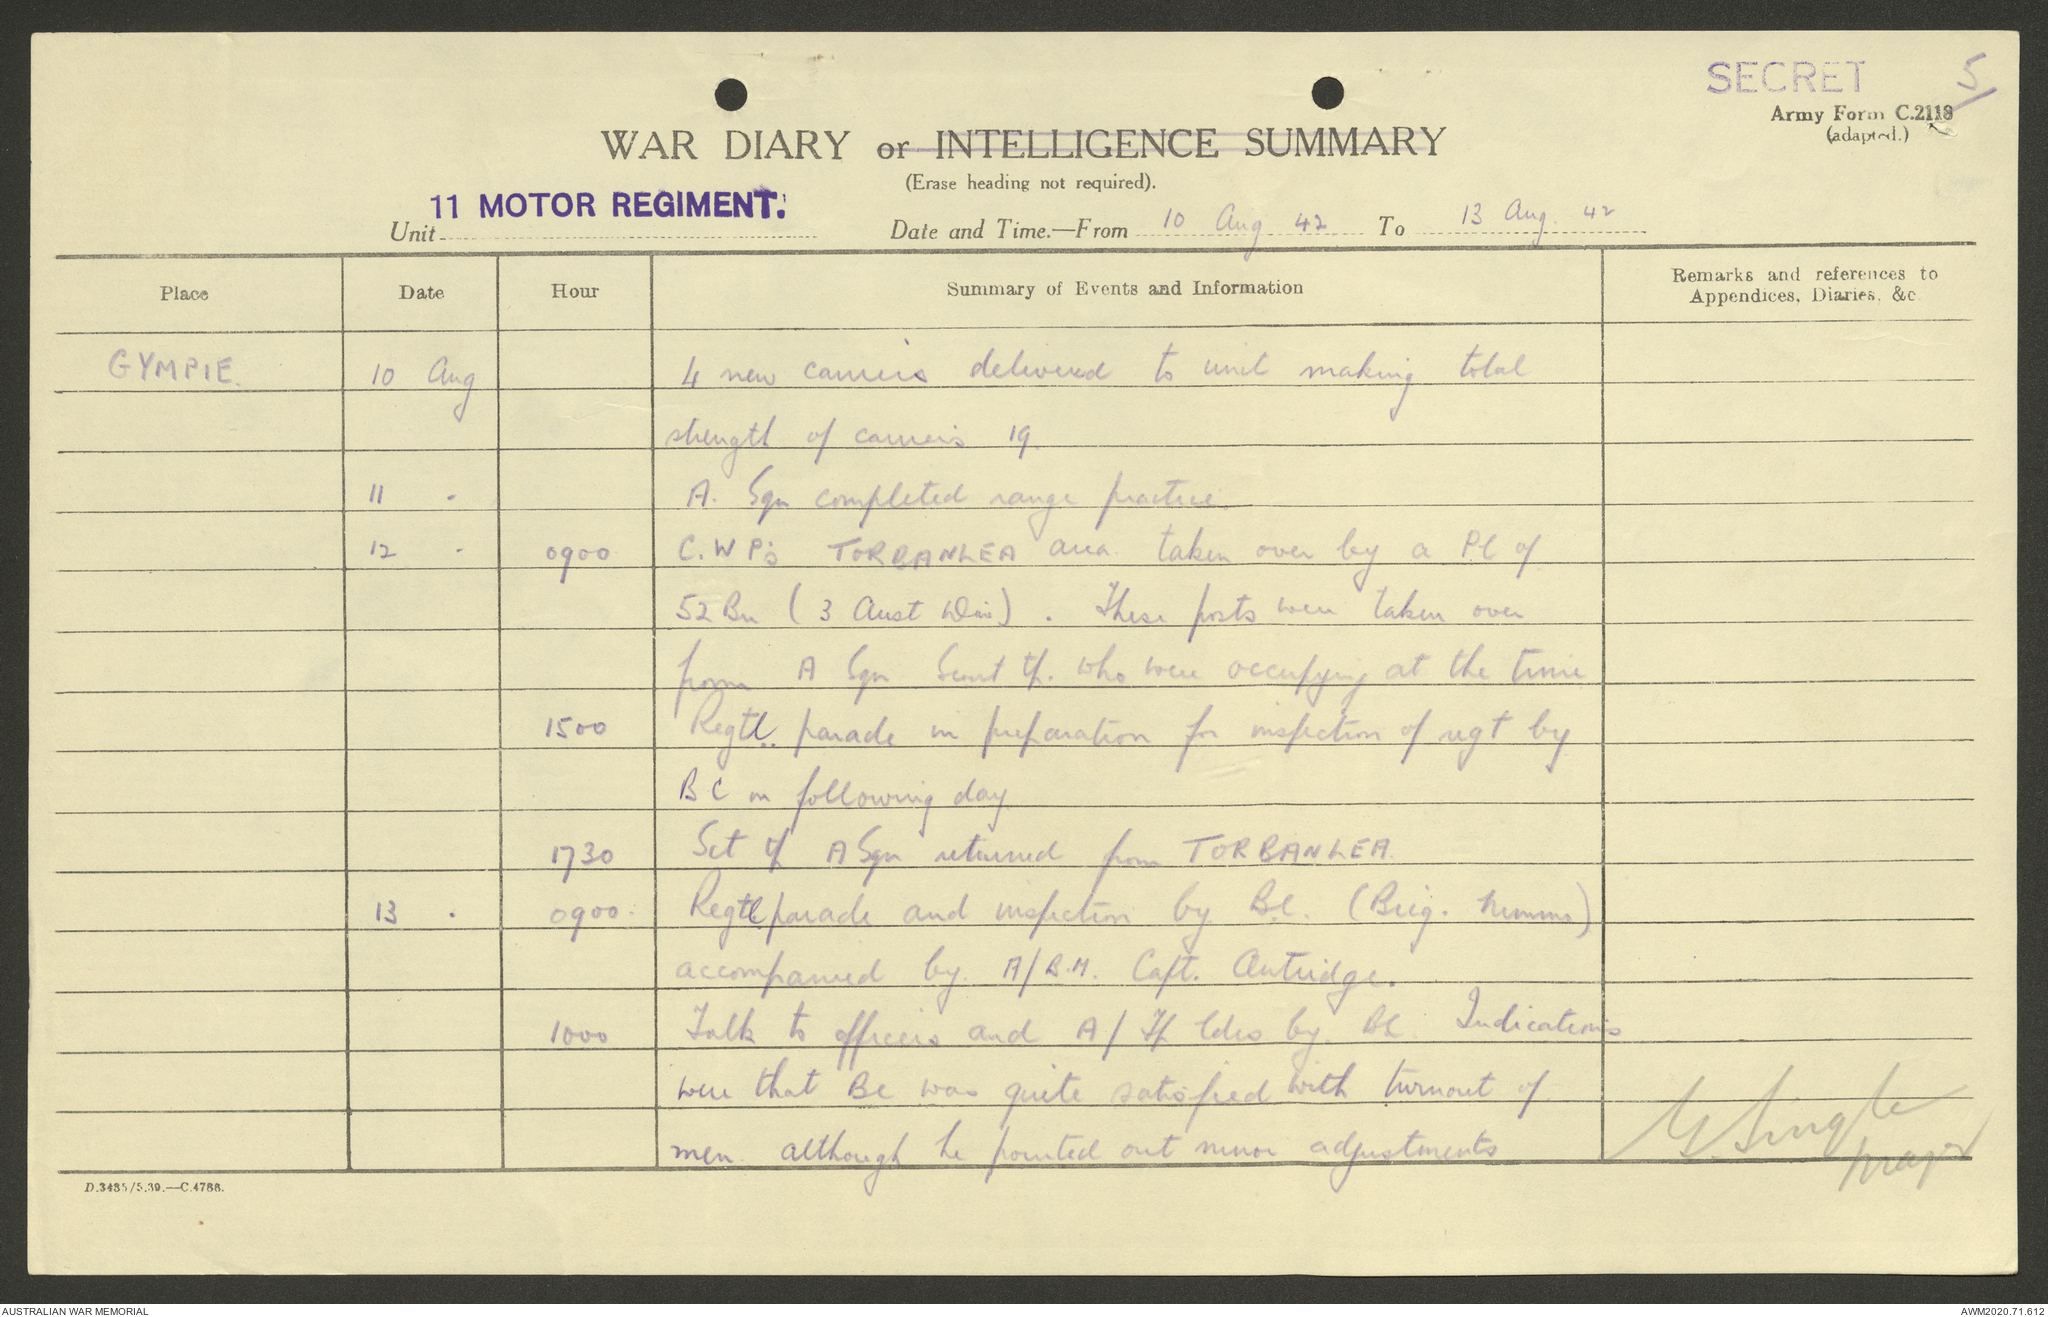 SECRET 5
Army Form C.2118
(adapted.)
WAR DIARY or INTELLIGENCE SUMMARY
(Erase heading not required).
Unit 11 MOTOR REGIMENT. Date and Time.—From 10 Aug 42 To 13 Aug. 42
Place Date Hour Summary of Events and Information Remarks and references to
Appendices, Diaries, &c
GYMPIE. 10 Aug 4 new carriers delivered to unit making total
strength of carriers 19.
11 - A. Sqn completed range practice.
12 - 0900 C.W P's TORBANLEA area taken over by a Pl of
52 Bn (3 Aust Div). These posts were taken over
from A Sqn Scout tp. who were occupying at the time
1500 Regtl. parade in preparation for inspection of regt by
B C on following day
1730 Sct tp A Sqn returned from TORBANLEA.
13 - 0900. Regtl parade and inspection by B.C. (Brig. Nimmo)
accompanied by A/B.M. Capt. Antridge.
1000 Talk to officers and A/Tp Ldrs by BC. Indications
were that BC was quite satisfied with turnout of
men although he pointed out minor adjustments
Single
Major
D.3485/5.39.—C.4788.
AUSTRALIAN WAR MEMORIAL AWM2020.71.612